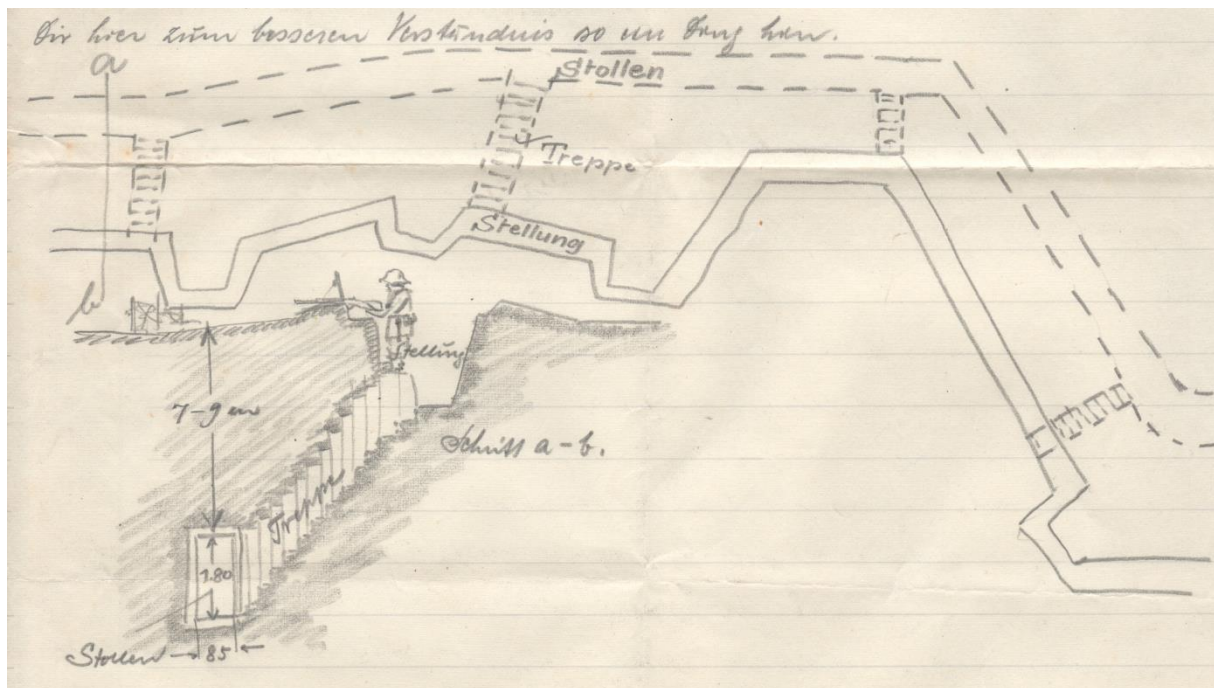 Dir hier zum besseren Verständnis so
a
Stollen
Treppe
Stellung
b
Stellung
7-9 m
Schnitt a-b.
Treppe
1.80
Stollen 85